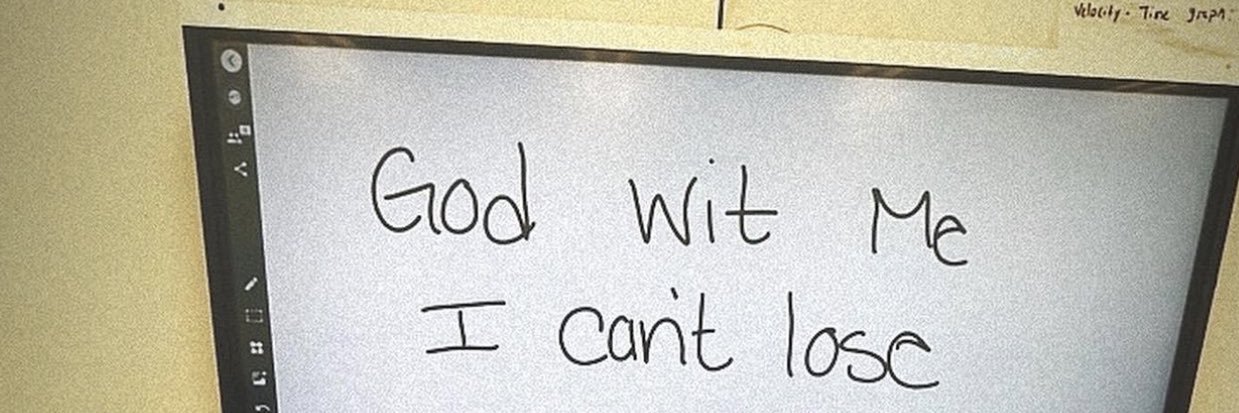 Velocity - Time graph:
God wit Me
I can't lose